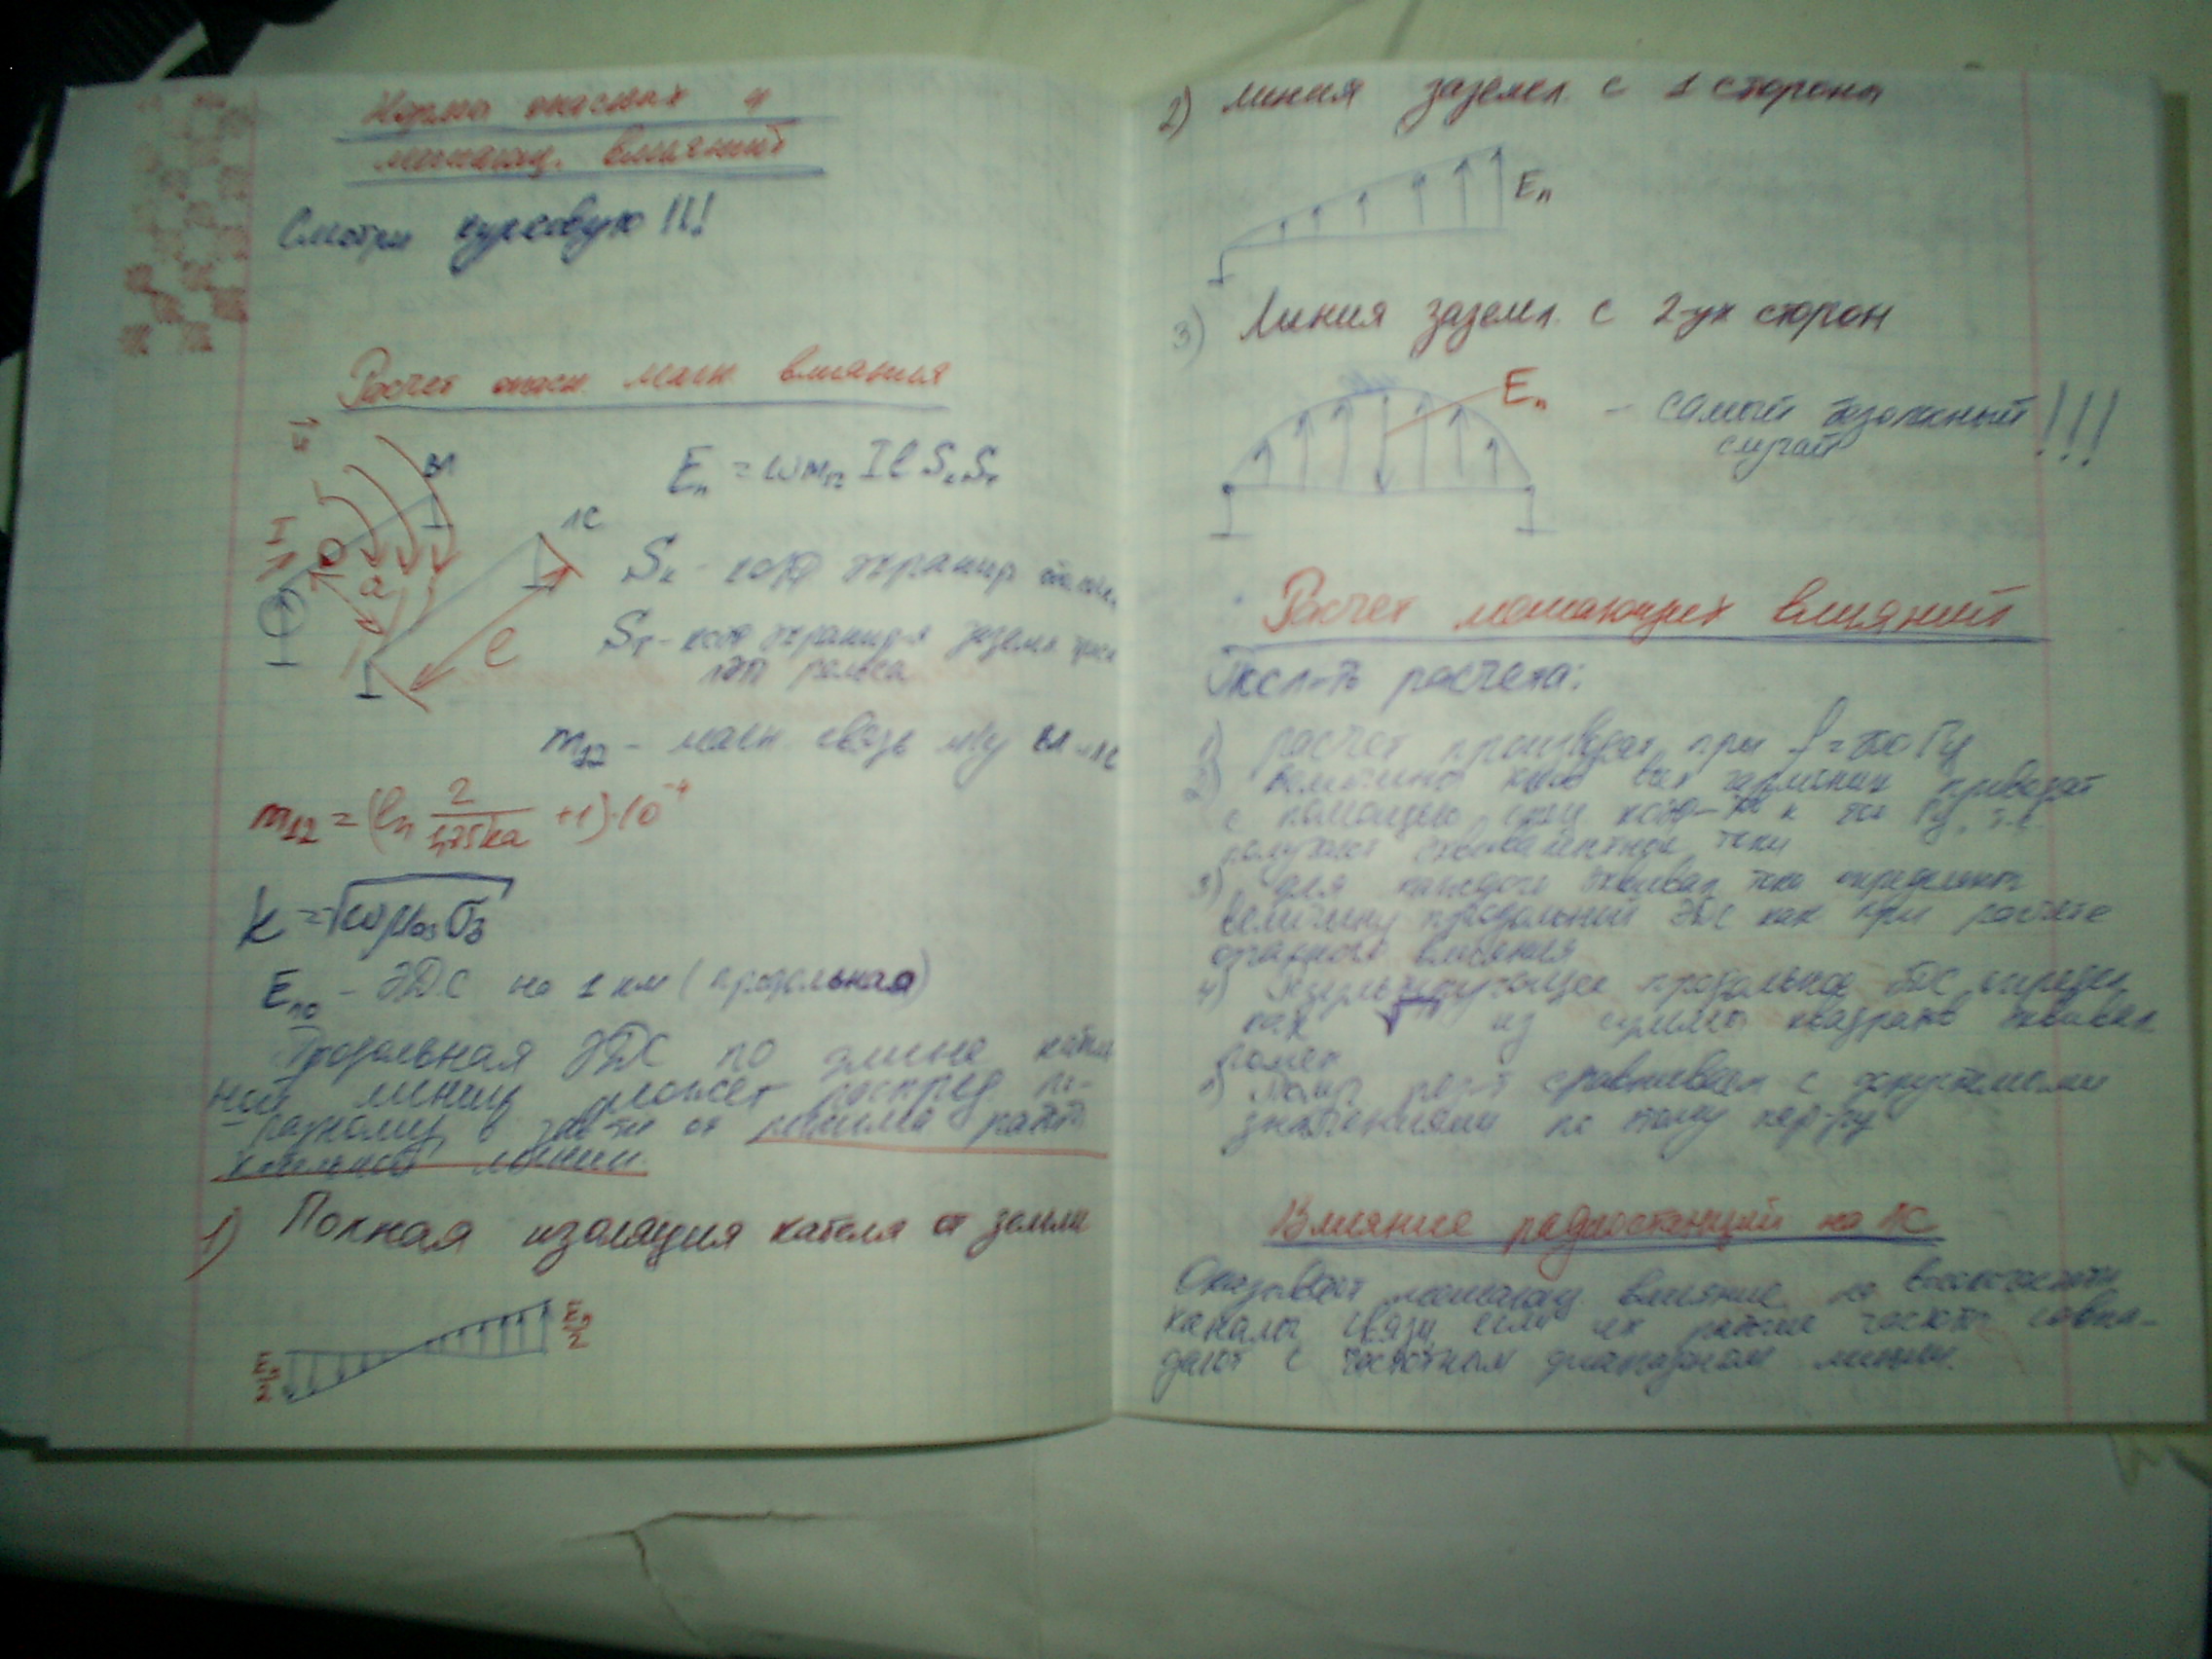 Нормы опасных и
мешающ. влияний
Смотри курсовую!!!
Расчет опасн. магн. влияния
ВЛ
I
a
ЛС
l
Eп = ωm12 I l Sк Sт
Sк - коэф экранир оболочк.
Sт - коэф экранир-я заземл. трос
рельса
m12 - магн. связь м/у ВЛ и ЛС
m12 = (ln 2/(1,75ka) + 1)·10⁻⁴
k = √(ωμ03σ3)
Eпо - ЭДС на 1 км (продольная)
Продольная ЭДС по длине кабель
ной линии может распред по-
разному в зав-ти от режима работы
кабельной линии.
1) Полная изоляция кабеля от земли
Eп/2
Eп/2
2) Линия заземл. с 1 стороны
Eп
3) Линия заземл. с 2-ух сторон
Eп
- самый безопасный !!!
случай
Расчет мешающих влияний
Посл-ть расчета:
1) расчет производят при f = 800 Гц
2) величины всех гармоник приводят
с помощью спец коэф-та к 800 Гц, т.е.
получают эквивалентные токи
3) Для каждого эквивал тока определяют
величину продольной ЭДС как при расчете
опасного влияния
4) Результирующее продольное ЭДС определ
как √ из суммы квадратов эквивал
5) сравниваем с допустимыми
значениями по этому пар-ру
Влияние радиостанций на ЛС
Оказывает мешающ. влияние на высокочастотн
каналы связи, если их рабочие частоты совпа-
дают с частотным диапазоном линии.